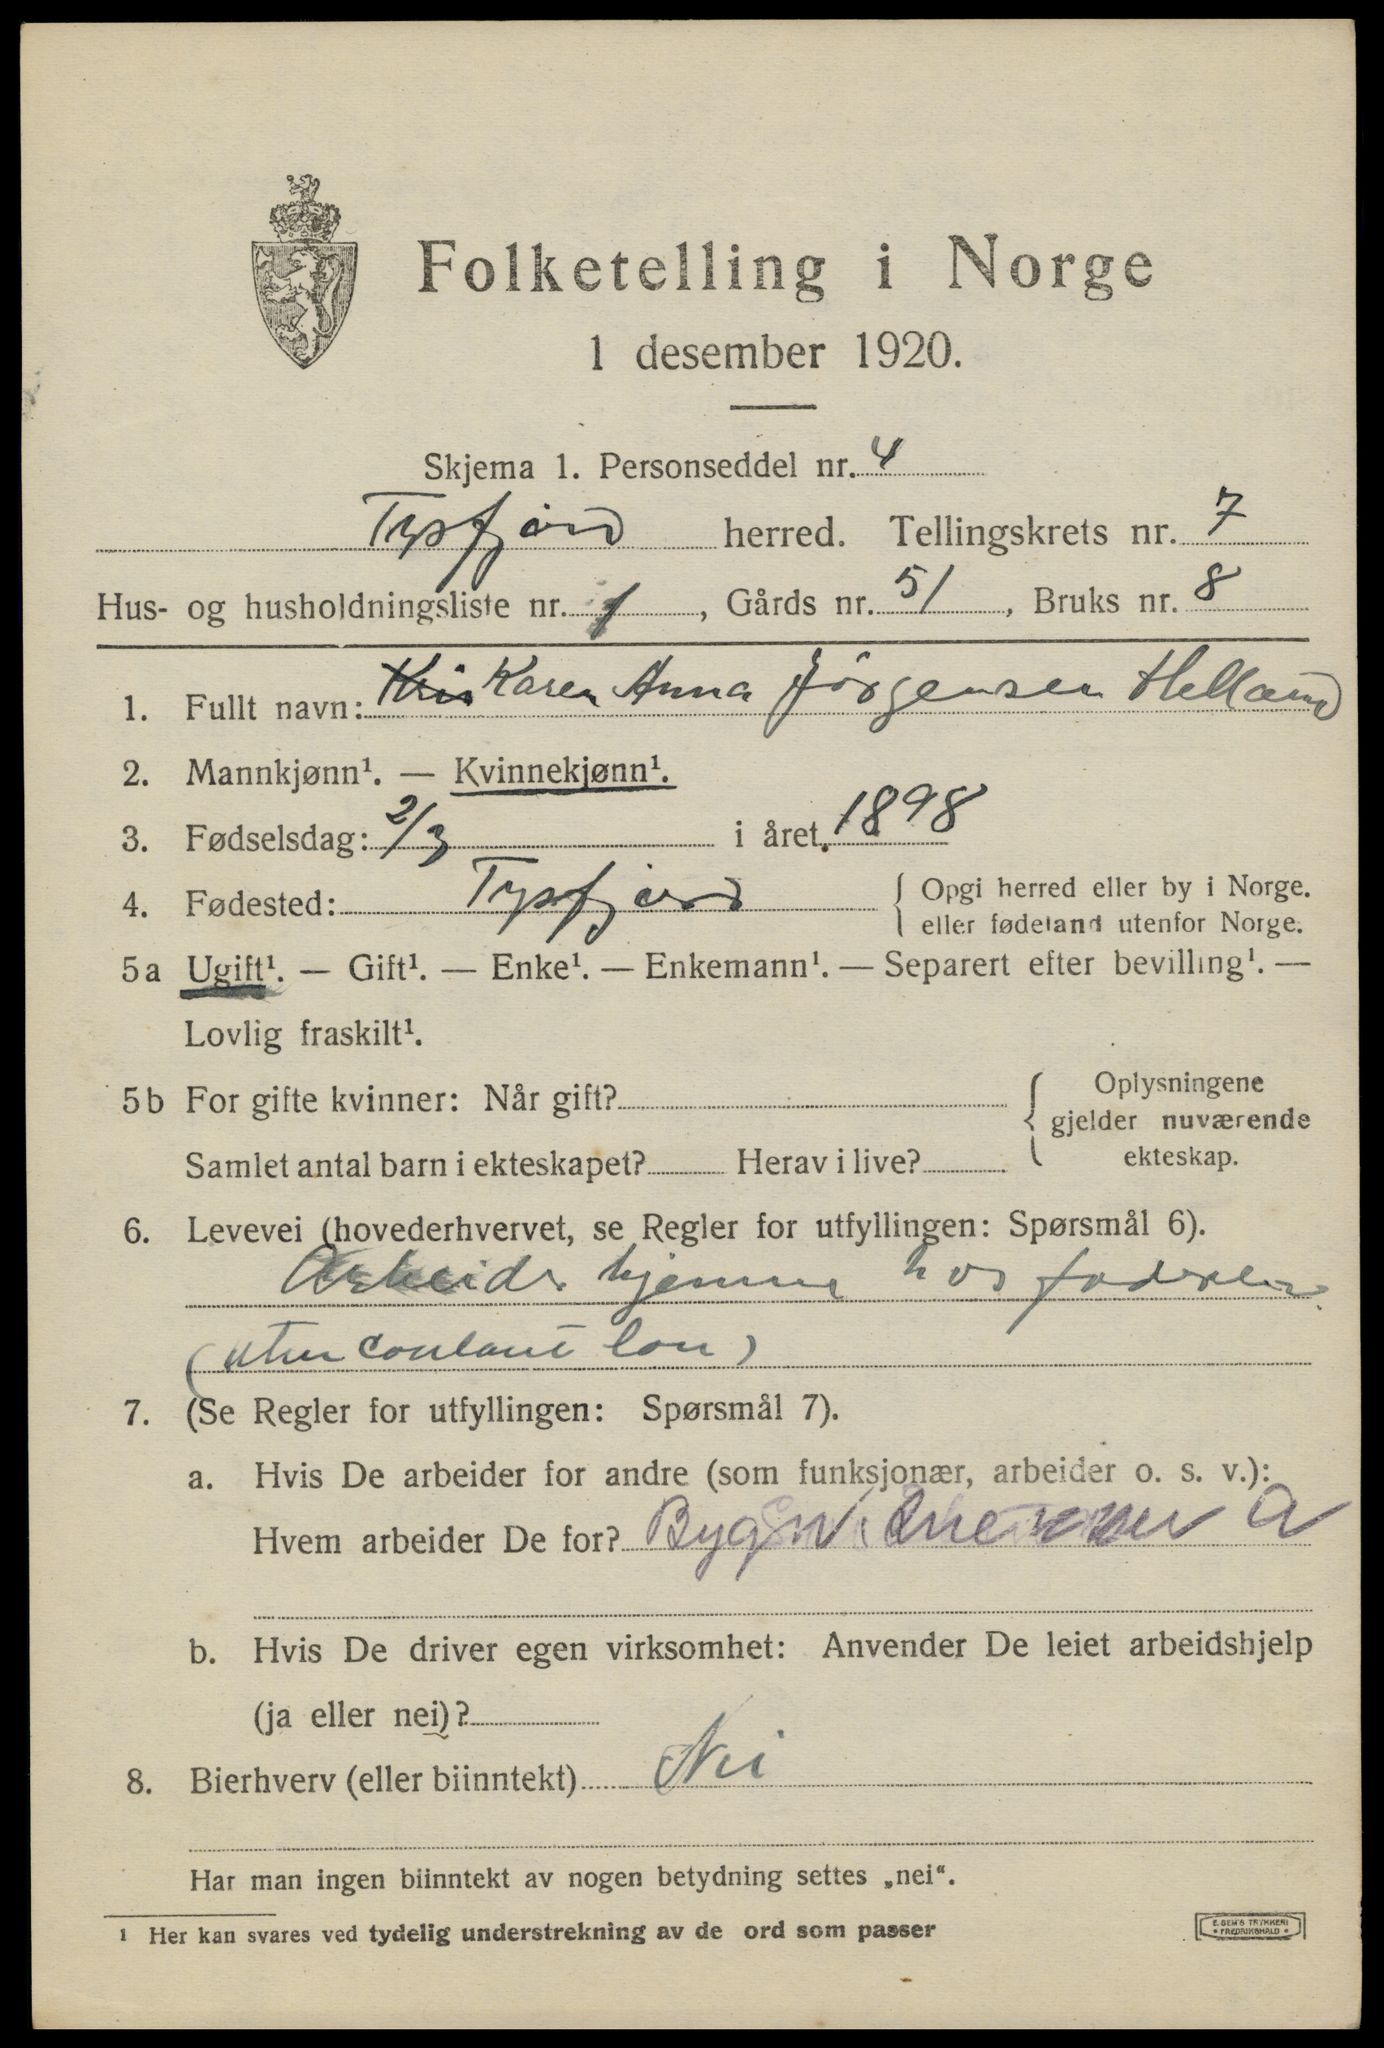 Folketelling i Norge
1 desember 1920.
Skjema 1. Personseddel nr. 4
Tysfjord herred. Tellingskrets nr. 7
Hus- og husholdningsliste nr. 1, Gårds nr. 51, Bruks nr. 8
1. Fullt navn: Karen Anna Jörgensen Helland
2. Mannkjønn¹. — Kvinnekjønn¹.
3. Fødselsdag: 2/3 i året. 1898
4. Fødested: Tysfjord { Opgi herred eller by i Norge.
eller fødeland utenfor Norge.
5a Ugift¹. — Gift¹. — Enke¹. — Enkemann¹. — Separert efter bevilling¹. —
Lovlig fraskilt¹.
5b For gifte kvinner: Når gift? { Oplysningene
gjelder nuværende
Samlet antal barn i ekteskapet? Herav i live? ekteskap.
6. Levevei (hovederhvervet, se Regler for utfyllingen: Spørsmål 6).
Arbeider hjemme hos
(uten contant lön)
7. (Se Regler for utfyllingen: Spørsmål 7).
a. Hvis De arbeider for andre (som funksjonær, arbeider o. s. v.):
Hvem arbeider De for?
b. Hvis De driver egen virksomhet: Anvender De leiet arbeidshjelp
(ja eller nei)?
8. Bierhverv (eller biinntekt) Nei
Har man ingen biinntekt av nogen betydning settes „nei“.
¹ Her kan svares ved tydelig understrekning av de ord som passer
E. SEM'S TRYKKERI
* FREDRIKSHALD *